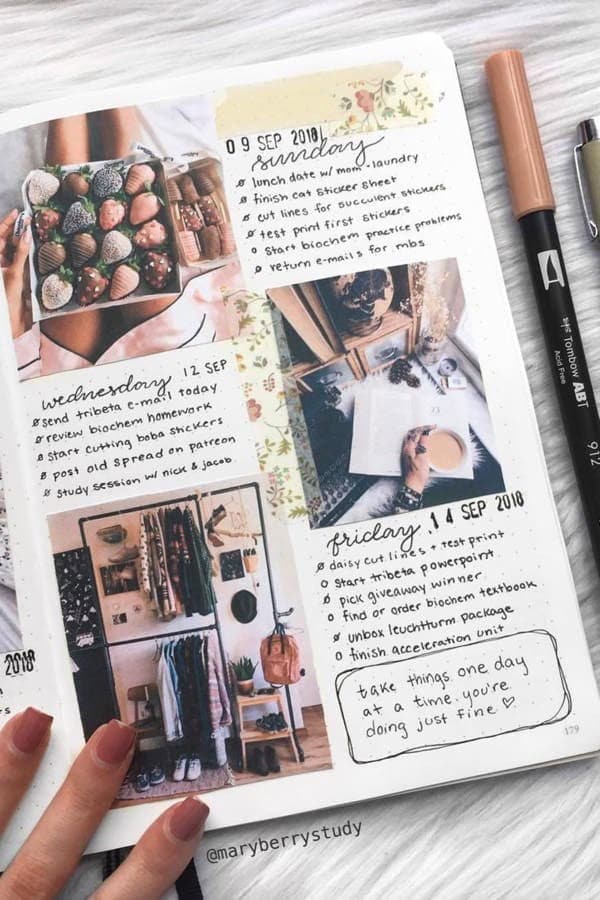 09 SEP 2018
sunday
ø lunch date w/ mom + laundry
ø finish cat sticker sheet
ø cut lines for succulent stickers
ø test print first stickers
o start biochem practice problems
ø return e-mails for mbs
wednesday 12 SEP
ø send tribeta e-mail today
ø review biochem homework
ø start cutting boba stickers
ø post old spread on patreon
ø study session w/ nick & jacob
friday 14 SEP 2018
ø daisy cut lines + test print
o start tribeta powerpoint
ø pick giveaway winner
o find or order biochem textbook
ø unbox leuchtturm package
o finish acceleration unit
take things one day
at a time. you're
doing just fine ♡
179
2018
@maryberrystudy
Tombow ABT
Acid Free
912